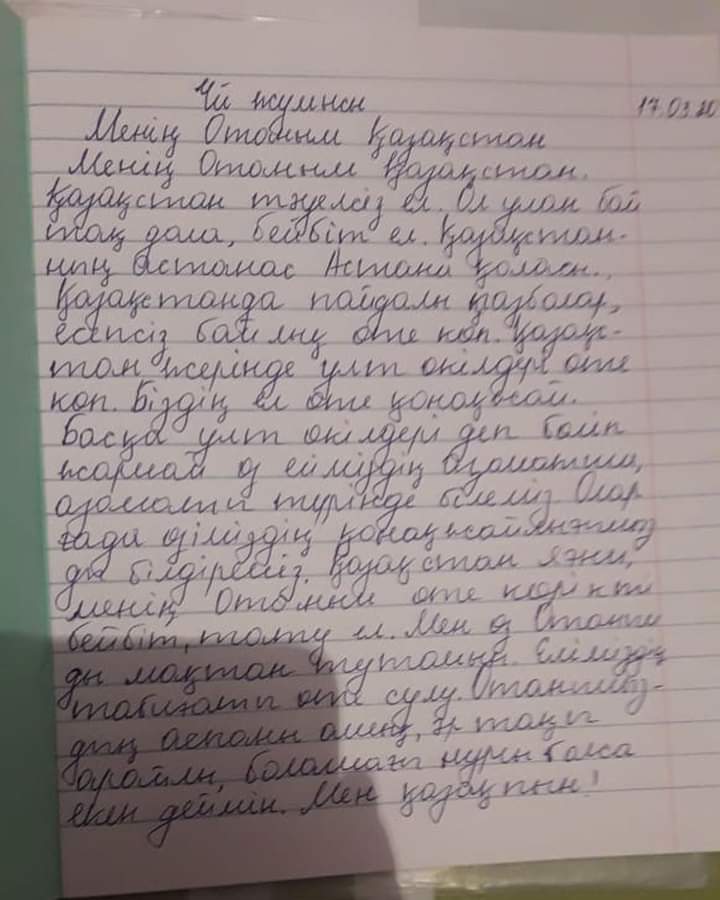 Үй жұмысы 17.03.20
Менің Отаным Қазақстан
Менің Отаным Қазақстан.
Қазақстан тәуелсіз ел. Ол ұлан бай
тақ дала, бейбіт ел. Қазақстан-
ның астанас Астана қаласы.
Қазақстанда пайдалы қазбалар,
есепсіз байлық өте көп. Қазақ-
тан жерінде ұлт өкілдері өте
көп. Біздің ел өте қонақжай.
Басқа ұлт өкілдері деп бөліп
жармай өз еліміздің азаматшы,
азаматы түрінде білеміз Олар
ғада өзіміздің қонақжайлығымыз
ды білдіреміз. Қазақстан яғни,
менің Отаным өте көрікті
бейбіт, тату ел. Мен өз Отаным
ды мақтан тұтамын. Еліміздің
табиғаты өте сұлу. Отанымыз-
дың аспаны ашық, әр таңы
арайлы, болашағы нұрлы болса
екен деймін. Мен қазақпын!